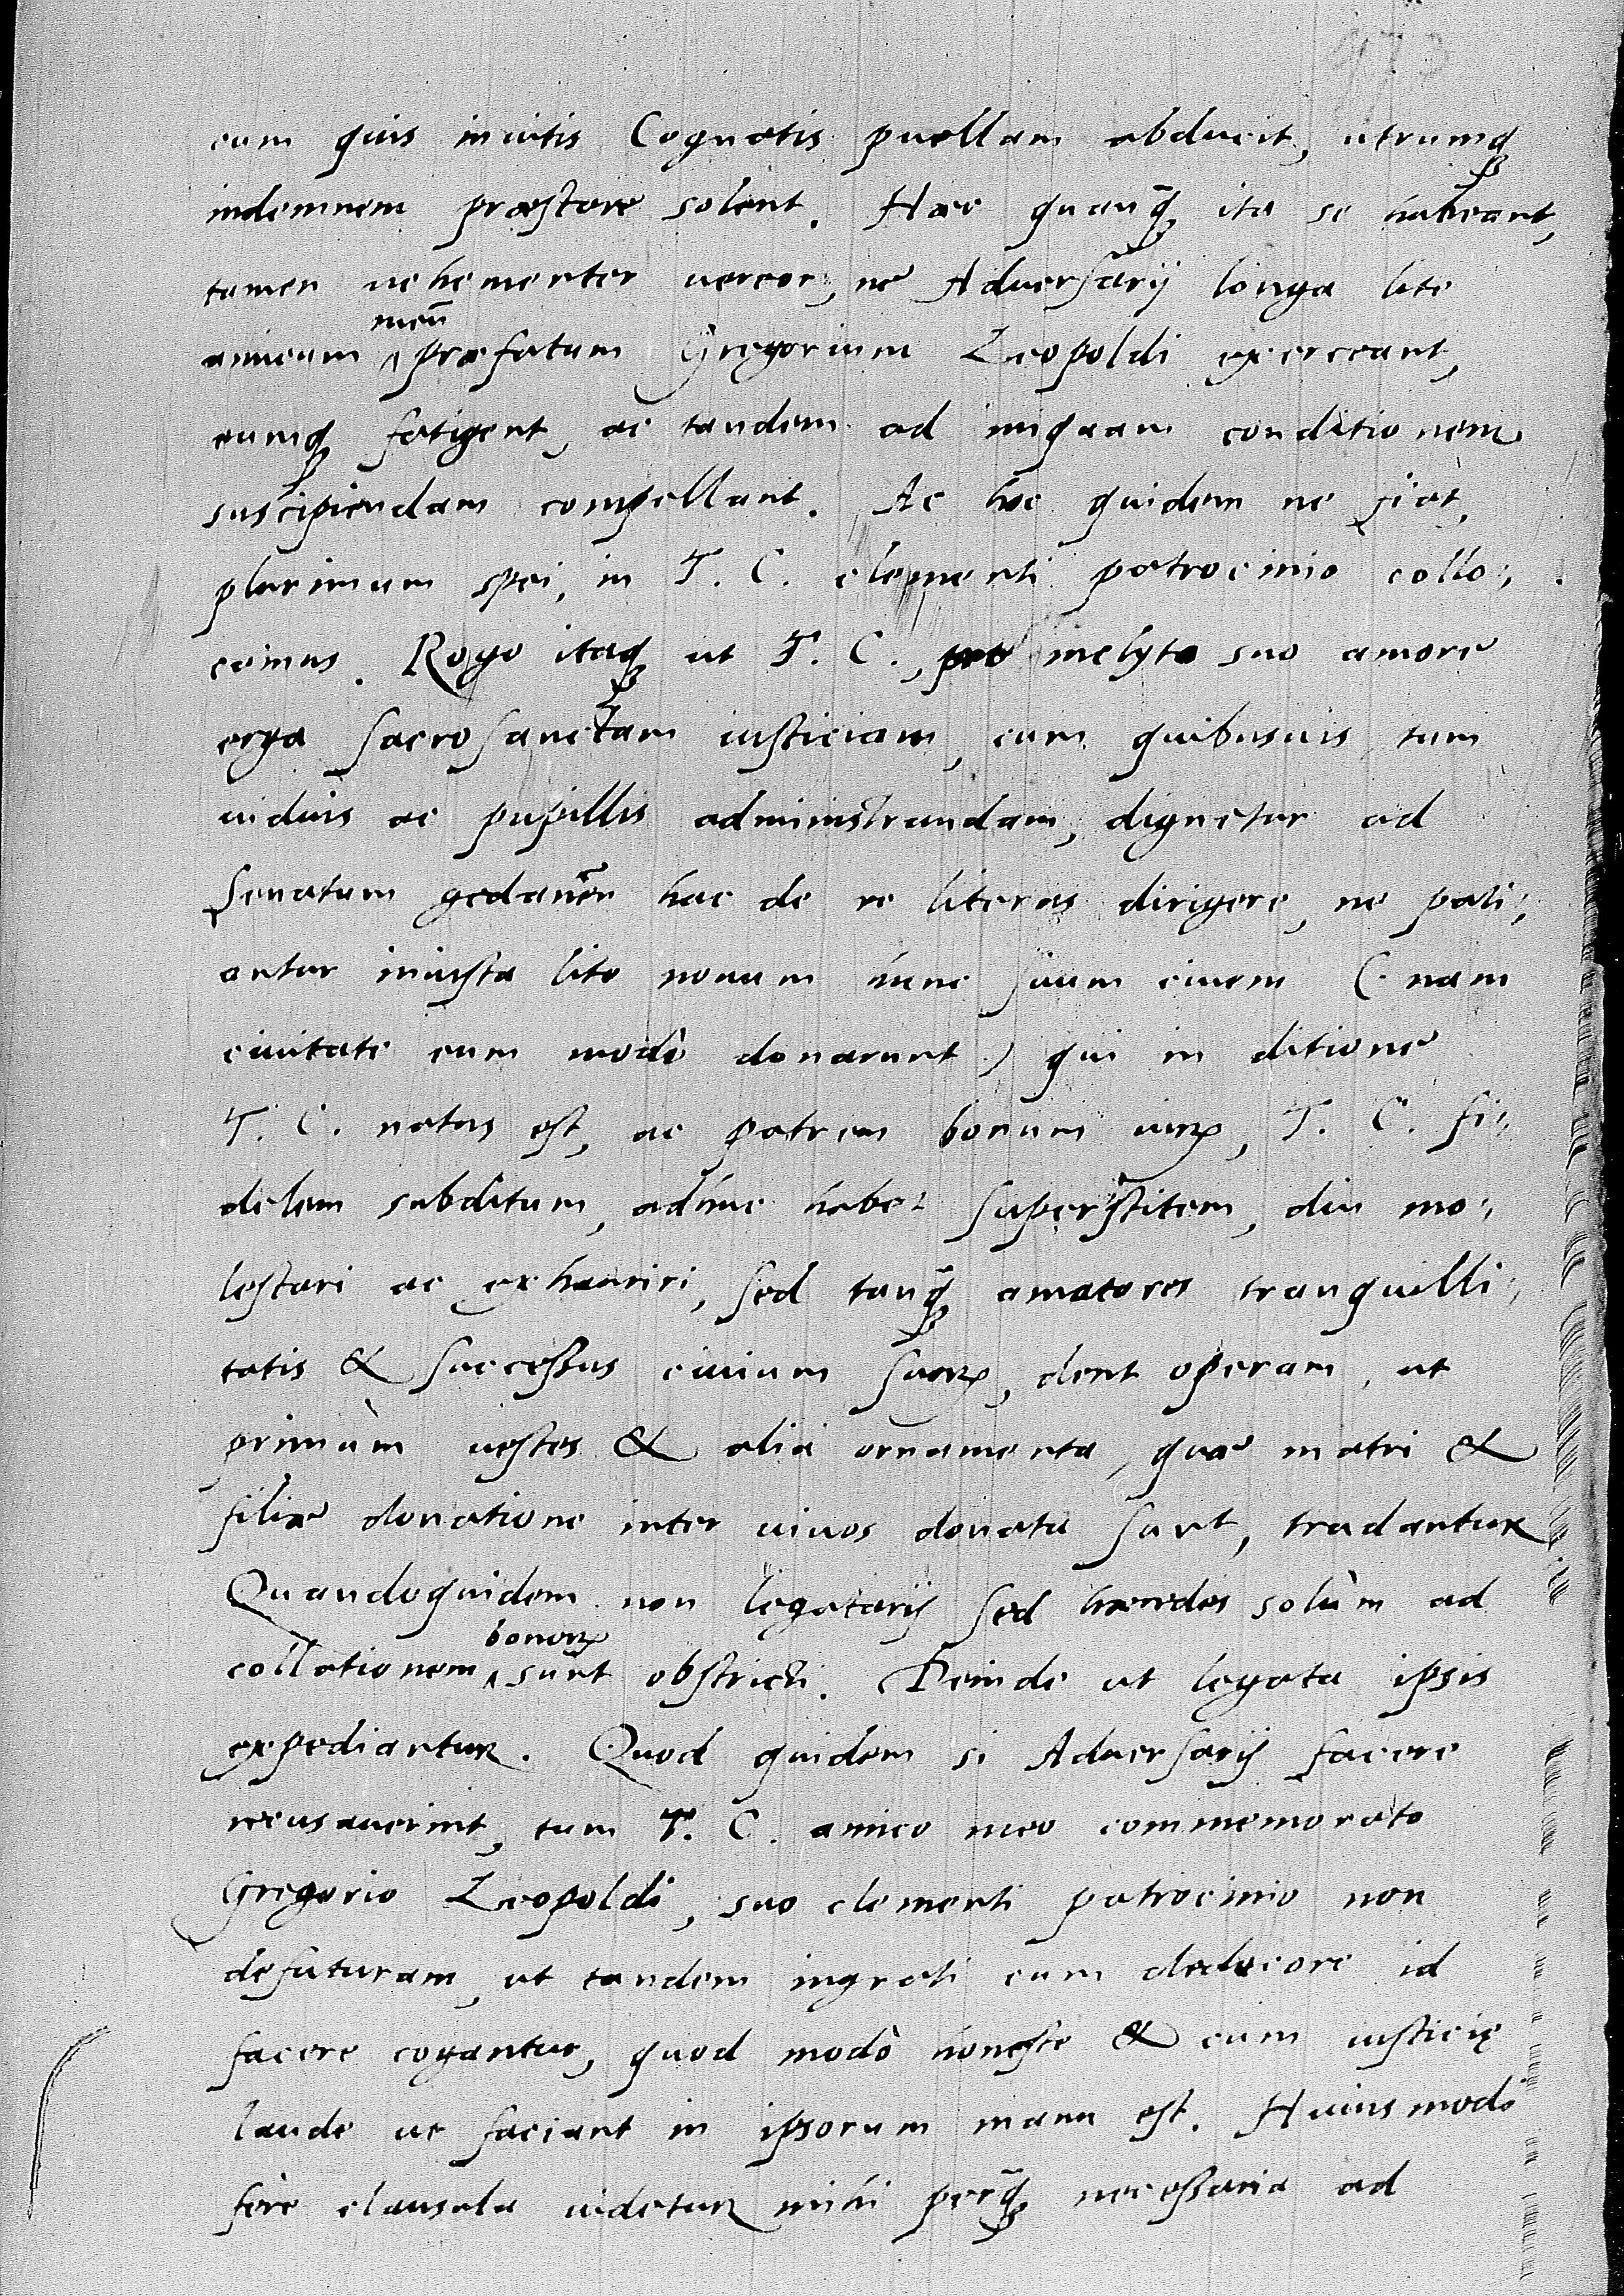 cum quis inuitis Cognatis puellam abducit, utrumq́₃
indemnem præstare solent. Hæc quanq̃₃ ita se habeant,
tamen uehementer uereor, ne Aduersarij longa lite
meũ
amicum ʌ præfatum Gregorium Leopoldi exerceant,
eumq₃ fatigent, ac tandem ad iniquam conditionem
suscipiendam compellant. Ac hoc quidem ne fiat,
plurimum spei, in T. C. clementi patrocinio collo:,
camus. Rogo itaq₃ ut T. C., pro inclyto suo amore
erga sacrosanctam iusticiam, cum quibusuis tum
uiduis ac pupillis administrandam, dignetur ad
Senatum gedanẽn hac de re literas dirigere, ne pati:,
antur iniusta lite nouum hunc suum ciuem (nam
ciuitate eum modò donarunt) qui in ditione
T. C. natus est, ac patrem bonum uirꝝ, T. C. fi:,
delem subditum, adhuc habet superstitem, diu mo:,
lestari ac exhauriri, sed tanq̃₃ amatores tranquilli:,
tatis & successus ciuium suorꝝ, dent operam, ut
primùm uestes & alia ornamenta, quæ matri &
filiæ donatione inter uiuos donata sunt, tradantur
Quandoquidem non legatarij sed hæredes solùm ad
bonorꝝ
collationem ʌ sunt obstricti. Deinde ut legata ipsis
expediantur. Quod quidem si Aduersarij facere
recusauerint, tum T. C. amico meo commemorato
Gregorio Leopoldi, suo clementi patrocinio non
defuturam, ut tandem ingrati cum dedecore id
facere cogantur, quod modò honeste & cum iusticię
laude ut faciant in ipsorum manu est. Huiusmodi
fere clausula uidetur mihi perq̃₃ necessaria ad